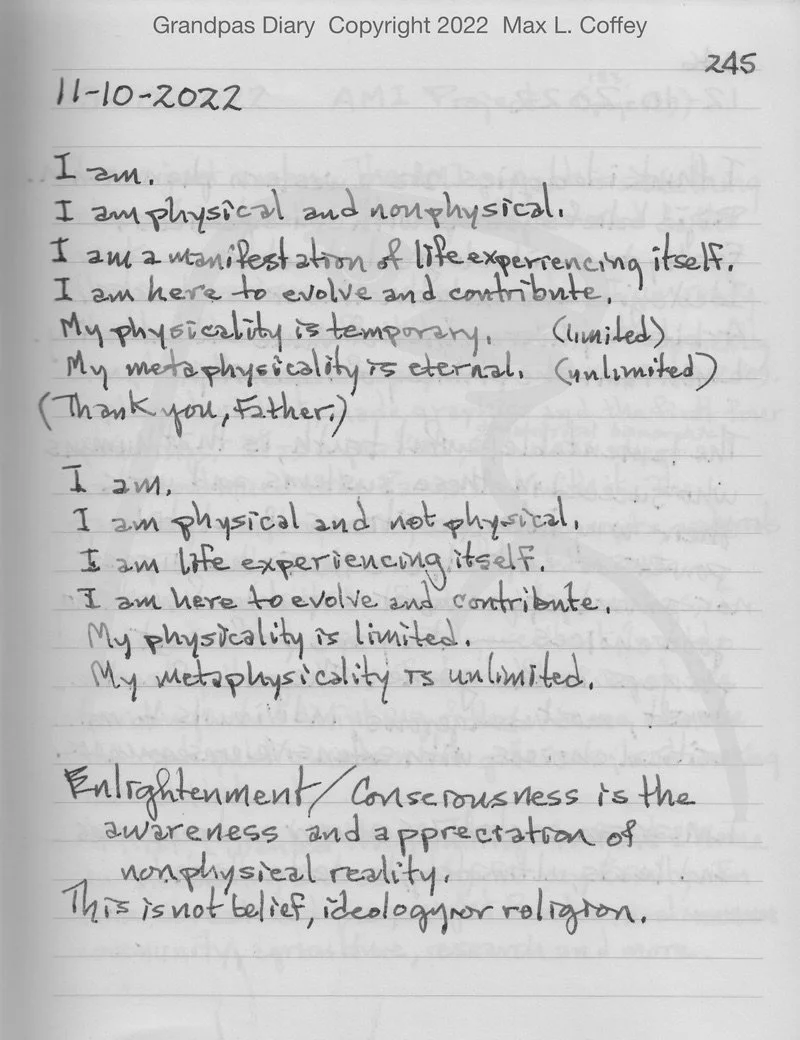 Grandpas Diary Copyright 2022 Max L. Coffey
245
11-10-2022
I am.
I am physical and nonphysical.
I am a manifestation of life experiencing itself.
I am here to evolve and contribute.
My physicality is temporary. (limited)
My metaphysicality is eternal. (unlimited)
(Thank you, Father.)
I am.
I am physical and not physical.
I am life experiencing itself.
I am here to evolve and contribute.
My physicality is limited.
My metaphysicality is unlimited.
Enlightenment/Consciousness is the
awareness and appreciation of
nonphysical reality.
This is not belief, ideology or religion.